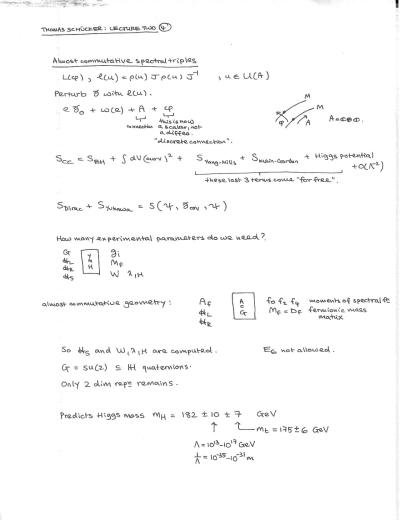 THOMAS SCHÜCKER: LECTURE TWO ④
Almost commutative spectral triples
L(φ), ℓ(u) = ρ(u) J ρ(u) J⁻¹ , u ∈ U(A)
Perturb ∂̸ with ℓ(u).
e ∂̸₀ + ω(e) + A + φ
connection
this is now a scalar, not a diffeo.
"discrete connection".
M
M
φ
A
A = ℂ⊕ℂ.
S_CC = S_EH + ∫ dV (curv)² + S_Yang-Mills + S_Klein-Gordon + Higgs potential + O(Λ⁻²)
these last 3 terms come "for free".
S_Dirac + S_Yukawa = S(ψ, ∂̸_cov, ψ)
How many experimental parameters do we need?
G
ℋ_L
ℋ_R
ℋ_S
Y M H
g_i
M_F
W λ, H
almost commutative geometry:
A_F
ℋ_L
ℋ_R
A C G
f₀ f₂ f₄ moments of spectral fc
M_F = D_F fermionic mass matrix
So ℋ_S and W, λ, H are computed.
E₆ not allowed.
G = SU(2) ⊆ ℍ quaternions.
Only 2 dim repⁿ remains.
Predicts Higgs mass m_H = 182 ± 10 ± 7 GeV
m_t = 175 ± 6 GeV
Λ = 10¹³–10¹⁷ GeV
1/Λ = 10⁻³⁵–10⁻³¹ m